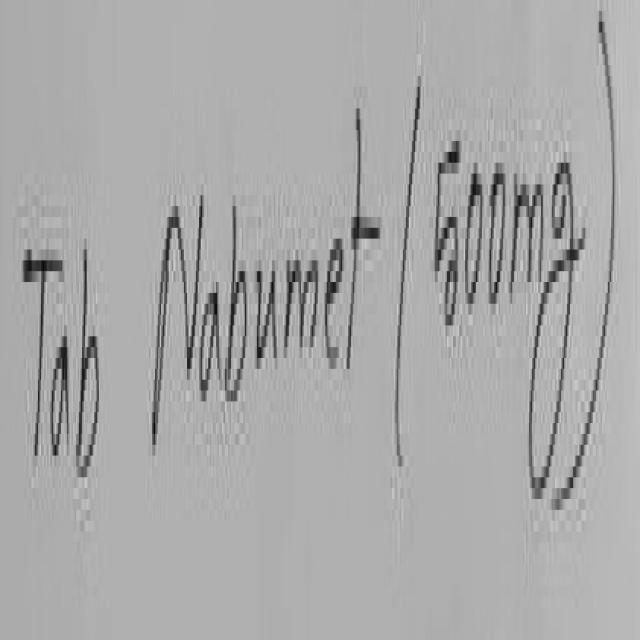 Tab Nabumet (500mg)